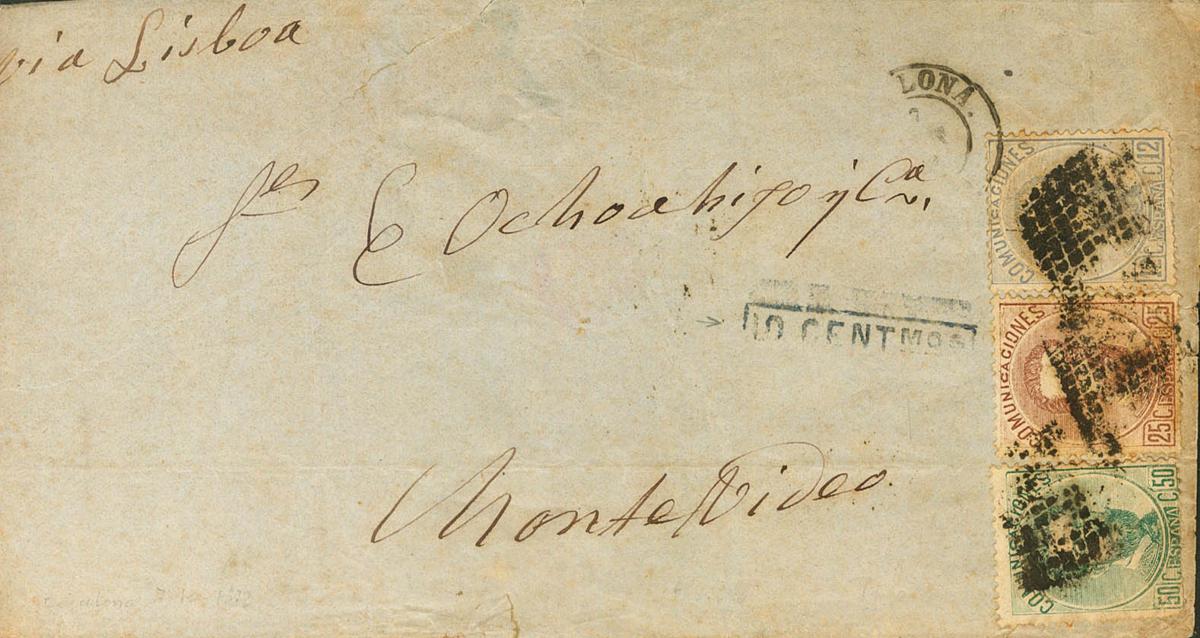 via Lisboa
LONA.
Sres E Ochoa hijo y Ca.
10 CENTMOS
Montevideo
COMUNICACIONES
12 C. ESPAÑA C. 12
COMUNICACIONES
25 C. ESPAÑA C. 25
50 C. ESPAÑA C. 50